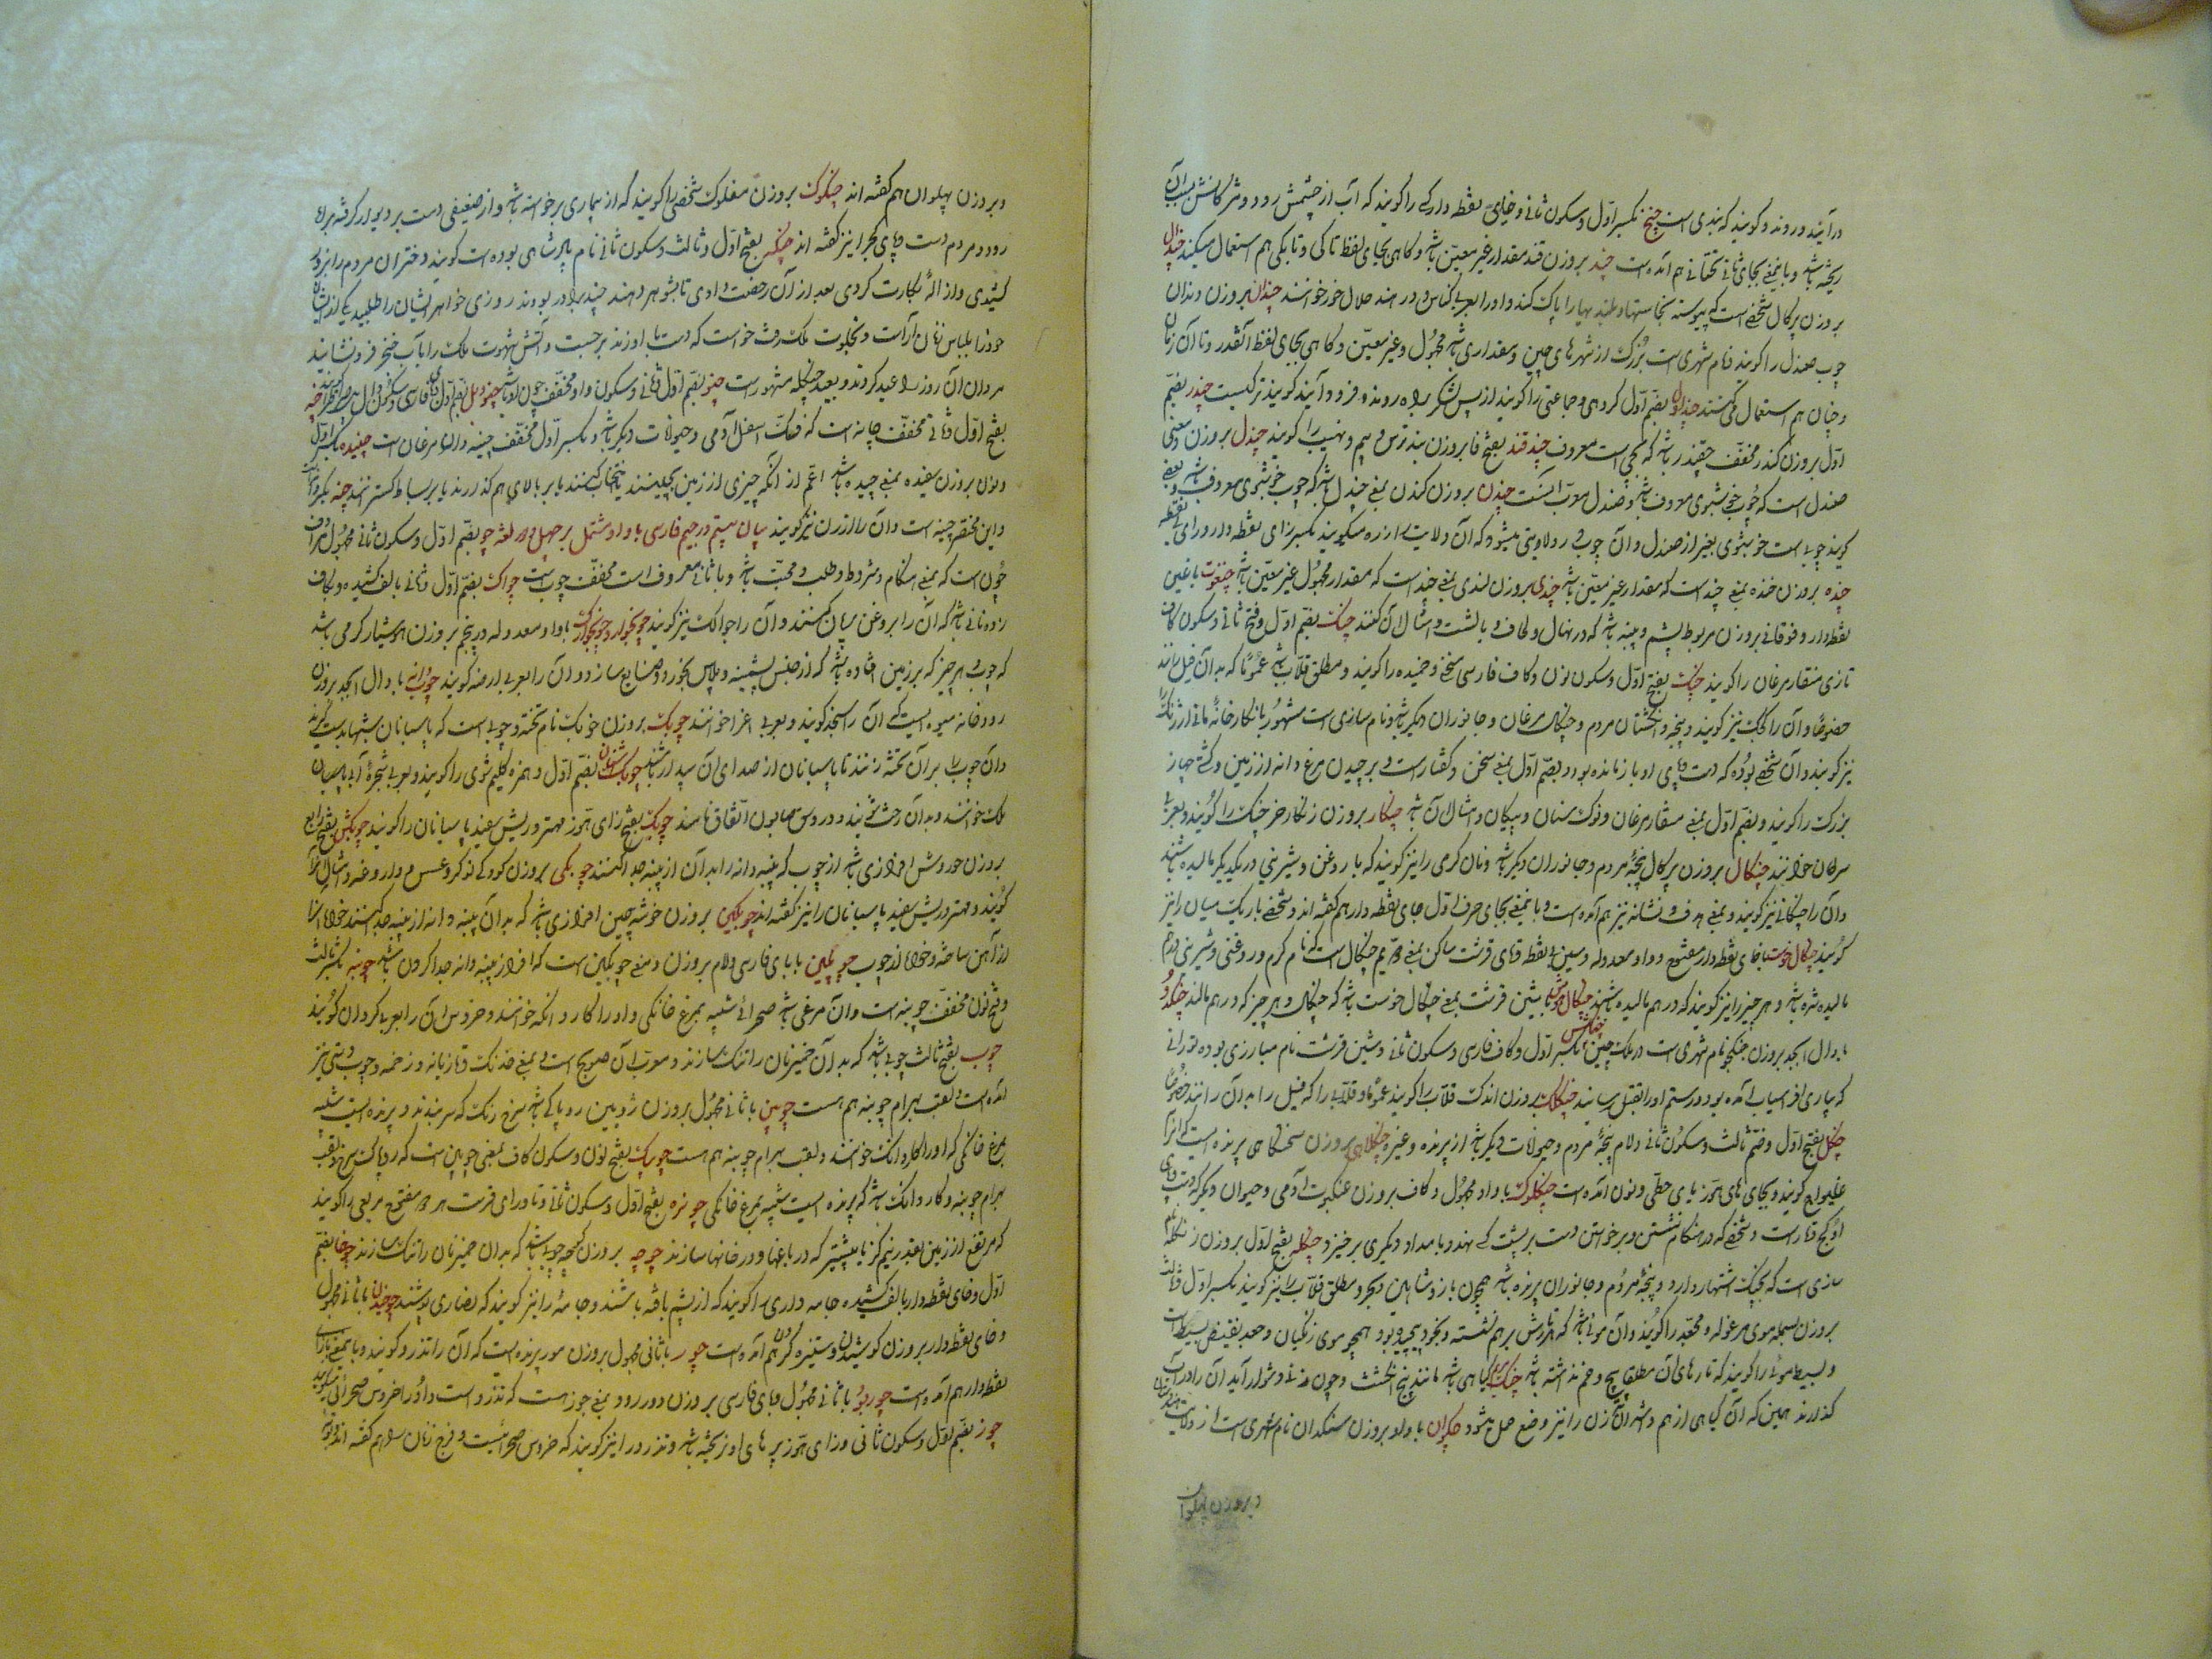 درآیند و روند و گویند که بندی است چنخ بکسر اول و سکون ثانی و خای نقطه دار کسی را گویند که آب از چشمش رود و مژگانش بسبب آن
ریخته باشد و بمعنی بجای ثانی تحتانی هم آمده است چند بروزن قند مقدار غیر معین باشد و گاهی بجای لفظ تا کی و تا بکی هم استعمال میکنند چندال
بروزن پرکال شخصی است که پیوسته نجاستها و پلیدیها را پاک کند و او را بعربی کناس و در هند حلال خور خوانند چندان بروزن دندان
چوب صندل را گویند و نام شهری است بزرگ از شهرهای چین و مقداری باشد مجهول و غیر معین و گاهی بجای لفظ آنقدر و تا آن زمان
و چنان هم استعمال می کنند چنداول بضم اول گروهی و جماعتی را گویند از پس لشکر براه روند و فرود آیند گویند ترکیست چندر بضم
اول بروزن کندر مخفف چقندر باشد که بیخی است معروف چندقند بفتح قا بروزن بند ترس و بیم و نهیب را گویند چندل بروزن و معنی
صندل است که چوب خوشبوی معروف باشد و صندل معرب آنست چندن بروزن کندن بمعنی چندل باشد که چوب خوشبوی معروف باشد و بعضی
گویند چوبی است خوشبوی بغیر از صندل و آن چوب در ولایتی میشود که آن ولایت را زره میگویند بکسر زای نقطه دار و رای بی نقطه
چنده بروزن خنده بمعنی چند است که مقدار غیر معین باشد چندی بروزن لندی بمعنی چند است که مقدار مجهول غیر معین باشد چنغوت باغین
نقطه دار و فوقانی بروزن مربوط پشم و پنبه باشد که در نهالی و لحاف و بالشت و امثال آن کنند چنک بضم اول و فتح ثانی و سکون کاف
تازی منقار مرغان را گویند چنگ بفتح اول و سکون نون و کاف فارسی منحنی و خمیده را گویند و مطلق قلاب باشد عموما که بدان فیل رانند
خصوصا و آن را کجک نیز گویند و پنجه و انگشتان مردم و چنگال مرغان و جانوران دیگر باشد و نام سازی است مشهور و نگارخانه مانی ارژنگ را
نیز گویند و آن شخصی بوده که دست و پای او باز مانده بود و بضم اول بمعنی سخن و گفتار است و برچیدن مرغ دانه از زمین و کشتی جهاز
بزرگ را گویند و بضم اول بمعنی منقار مرغان و نوک سنان و پیکان و امثال آن باشد چنگار بروزن زنگار خرچنگ را گویند و بعربی
سرطان خوانند چنگال بروزن پرکال پنجه مردم و جانوران دیگر باشد و نان گرمی را نیز گویند که با روغن و شیرینی در یکدیگر مالیده باشند
و آن را چنگالی نیز گویند و بمعنی هدف و نشانه نیز هم آمده است و باین معنی بجای حرف اول خای نقطه دار هم گفته اند و شخصی باریک میان را نیز
گویند چنگال خوست با خای نقطه دار مفتوح و واو معدوله و سین بی نقطه و تای قرشت ساکن بمعنی دویم چنگال است که نان گرم در روغن و شیرینی درهم
مالیده شده باشد و هر چیز را نیز گویند که درهم مالیده باشند چنگال خوش با شین قرشت بمعنی چنگال خوست باشد که چنگالی و هر چیز که درهم مالند
با دال ابجد بروزن جنگجو نام شهری است در ملک چین چنگش بکسر اول و کاف فارسی و سکون ثانی و شین قرشت نام مبارزی بوده تورانی
که بیاری افراسیاب آمده بود و رستم او را بقتل رسانید چنگک بروزن اندک قلاب را گویند عموما و قلابی را که فیل را بدان رانند خصوصا
چنگل بفتح اول و ضم ثالث و سکون ثانی و لام پنجه مردم و حیوانات دیگر باشد از پرنده و غیره چنگلاهی بروزن سنگلاهی پرنده ایست که آنرا
غلیواج گویند و بجای های هوز یای حطی و نون آمده است چنگلوک با واو مجهول و کاف بروزن عنکبوت آدمی و حیوان دیگر که دست و پای
او کج و ناراست و شخصی که در هنگام نشستن و برخواستن دست بر پشت کسی نهد و بامداد دیگری برخیزد چنگله بفتح اول بروزن زنگله نام
سازی است که بچنگ اشتهار دارد و پنجه مردم و جانوران پرنده باشد همچون باز و شاهین و چرغ و مطلق قلاب را نیز گویند بکسر اول و ثالث
بروزن سلسله موی مرغوله و مجعد را گویند و آن موئی باشد که اطرافش برهم نشسته و بخود پیچیده بود همچو موی زنگیان و جعد نقیض بسیط است
و بسیط موئی را گویند که تارهای آن مطلق پیچ و خم نداشته باشد چنگ مریم گیاهی باشد مانند پنج انگشت و چون زنی دشوار زاید آن را در آب
گذارند همین که آن گیاه از هم واشد آن زن را نیز وضع حمل شود چنگوان با واو بروزن سنگدان نام شهری است از ولایت هندوستان
و بروزن پهلوان
و بروزن پهلوان هم گفته اند چنگوک بروزن مفلوک شخصی را گویند که از بیماری برخواسته باشد و از ضعیفی دست بر دیوار گرفته براه
رود و مردم دست و پای کج را نیز گفته اند چنگه بفتح اول و ثالث و سکون ثانی نام پادشاهی بوده است گویند دختران مردم را بزور
کشیدی و ازاله بکارت کردی بعد از آن رخصت دادی تا بشوهر دهند چند برادر بودند روزی خواهر ایشان را طلبید یکی از ایشان
خود را بلباس زنان آراست و بخلوت ملک رفت خواست که دست باو زند برجست و آتش شهوت ملک را بآب خنجر فرونشانید
مردان آن روز را عید کردند و بعید چنگله مشهور است چنو بضم اول و ثانی و سکون واو مخفف چون او باشد
بفتح اول و ثانی مخفف چانه است که فک اسفل آدمی و حیوانات دیگر باشد و بکسر اول مخفف چینه و دانه مرغان است چنیده بکسر اول
و نون بروزن سفیده بمعنی چیده باشد اعم از آنکه چیزی از زمین بچینند یا انتخاب کنند یا بر بالای هم گذارند یا بر بساط گسترانند
و این مختصر چینه است و آن را ارزن نیز گویند بیان بیستم در جیم فارسی با واو مشتمل بر چهل و نه لغة چو بضم اول و سکون ثانی مجهول مرادف
چون است که بمعنی هنگام و شرط و طلب و محبت باشد و با ثانی معروف است مخفف چوب است چواک بضم اول و ثانی بالف کشیده و بکاف
زده نانی باشد که آن را بروغن بریان کنند و آن را جوالک نیز گویند با واو معدوله در پنجم بروزن هوشیار کرمی باشد
که چوب و هر چیز که بر زمین افتاده باشد که از جنس پشمینه و پلاس بخورد و ضایع سازد و آن را بعربی ارضه گویند چوبدانه با دال ابجد بروزن
رودخانه میوه ایست که آن را سنجد گویند و بعربی غبرا خوانند چوبک بروزن خوبک نام تخته و چوبی است که پاسبانان شبها بدست گیرند
و آن چوب را بر آن تخته زنند تا پاسبانان از صدای آن بیدار باشند چوبک اشنان بضم اول و همزه گلیم شوی را گویند و بعربی شجرة ابی مالک
خوانند و بدان رخت شویند و در روس صابون اتفاق نامند چوبک بفتح زای هوز مهتر و ریش سفید پاسبانان را گویند چوبکش بفتح رابع
بروزن خودوش افزاری باشد از چوب که پنبه دانه را بدان از پنبه جدا کنند چوبکی بروزن کودکی نوکر و عسس و داروغه و امثال آنرا
گویند و مهتر و ریش سفید پاسبانان را نیز گفته اند چوبکین بروزن خوشه چین افزاری باشد که بدان پنبه دانه از پنبه جدا کنند خواه آنرا
از آهن ساخته و خواه از چوب چوبگین با بای فارسی و لام بروزن و معنی چوبکین است که افزار پنبه دانه جدا کردن باشد چوبنه بکسر ثالث
و فتح نون مخفف چوبینه است و آن مرغی باشد صحرائی شبیه بمرغ خانگی و او را کاروانک خوانند و خروس آن را بعربی کروان گویند
چوب بفتح ثالث چوبی باشد که بدان خمیر نان را تنک سازند و معرب آن صوبج است و بمعنی خدنگ و تازیانه و زخمه و چوب دستی نیز
آمده است و لقب بهرام چوبینه هم هست چوبین با ثانی مجهول بروزن ژوبین روپاکی باشد سرخ رنگ که بر سر بندند و پرنده ایست شبیه
بمرغ خانگی که او را کاروانک خوانند و لقب بهرام چوبینه هم هست چوبینک بفتح نون و سکون کاف بمعنی چوبین است که روپاک سرخ و لقب
بهرام چوبینه و کاروانک باشد که پرنده ایست شبیه بمرغ خانگی چوتره بفتح اول و سکون ثانی و تا و رای قرشت هر دو مفتوح مربعی را گویند
که مرتفع از زمین بقدر نیم گز یا بیشتر که در باغها و در خانها سازند چوچه بروزن کوچه چوبی باشد که بدان خمیر نان را تنک سازند چوخا بضم
اول و خای نقطه دار بالف کشیده جامه واری را گویند که از پشم بافته باشند و جامه را نیز گویند که نصاری پوشند چوخیدن با ثانی مجهول
و خای نقطه دار بروزن کوشیدن ستیزه کردن هم آمده است چور با ثانی مجهول بروزن مور پرنده ایست که آن را تذرو گویند
نقطه دار هم آمده است چورپور با ثانی مجهول و بای فارسی بروزن دور رود بمعنی چور است که تذرو است و او را خروس صحرائی گویند
چوز بضم اول و سکون ثانی و زای هوز پرهای او نریخته باشد و تذرو را نیز گویند که خروس صحرائیست و فرج زنان را هم گفته اند